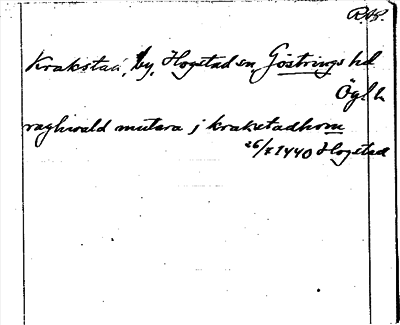 RAP.
Krakstad, by, Hogstad sn, Göstrings hd
Ögl
raghwald mutara j krakstadhom
26/8 1440 Hogstad